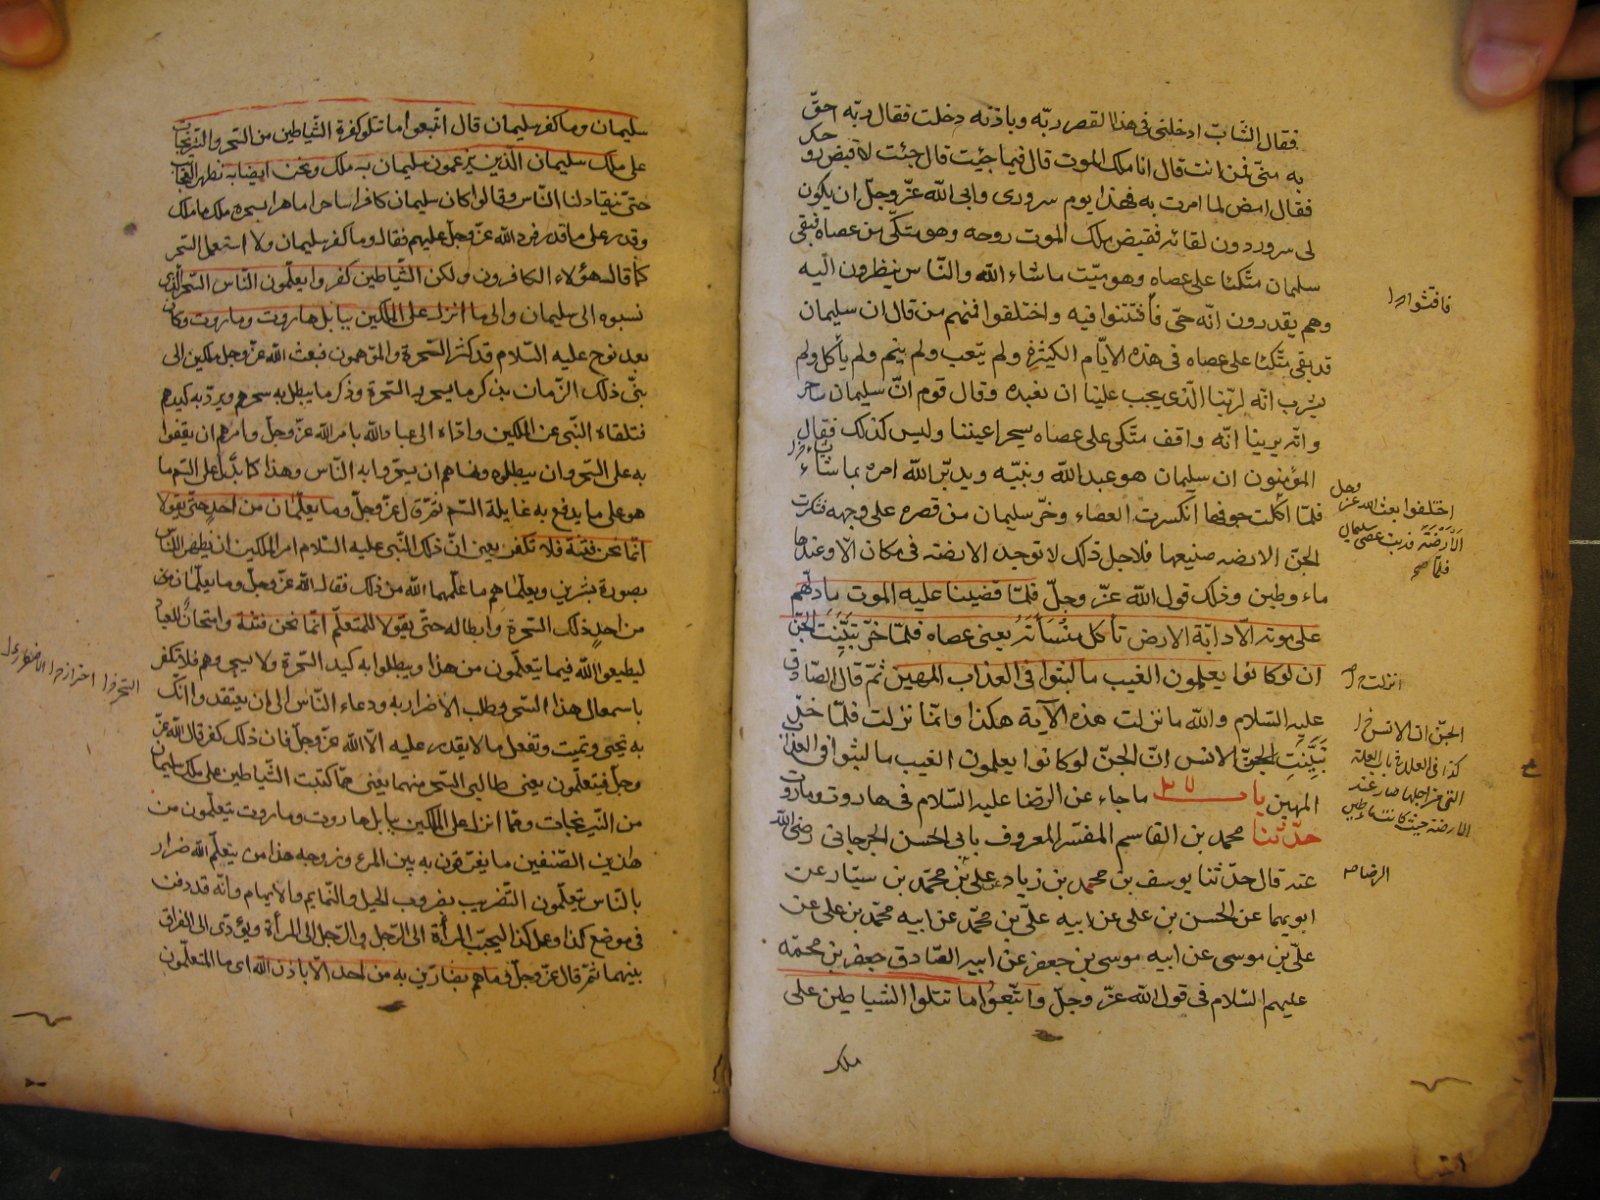 فقال الشاب ادخلنى فى هذا القصر ربّه وباذنه دخلت فقال ربّه احقّ
به منّى فمن انت قال انا ملك الموت قال فيما جئت قال جئت لاقبض روحك
فقال امض لما امرت به فهذا يوم سرورى وابى الله عزّ وجلّ ان يكون
لى سرور دون لقائه فقبض ملك الموت روحه وهو متّكى على عصاه فبقى
سليمان متّكئا على عصاه وهو ميّت ما شاء الله والنّاس ينظرون اليه
وهم يقدرون انّه حىّ فأفتتنوا فيه واختلفوا فمنهم من قال ان سليمان
قد بقى متّكئا على عصاه فى هذه الايّام الكثيرة ولم يتعب ولم ينم ولم يأكل ولم
يشرب انّه لربّنا الّذى يجب علينا ان نعبده وقال قوم انّ سليمان ساحر
وانّه يرينا انّه واقف متّكى على عصاه يسحر اعيننا وليس كذلك فقال
المؤمنون ان سليمان هو عبد الله ونبيّه ويدبّر الله امره بما شاء
فلمّا اكلت جوفها انكسرت العصاء وخرّ سليمان من قصره على وجهه فشكرت
الجنّ الارضه صنيعها فلاجل ذلك لا توجد الارضة فى مكان الّا وعندها
ماء وطين وذلك قول الله عزّ وجلّ فلمّا قضينا عليه الموت ما دلّهم
على موته الّا دابّة الارض تأكل منسأته يعنى عصاه فلمّا خرّ تبيّنت الجنّ
ان لو كانوا يعلمون الغيب ما لبثوا فى العذاب المهين ثمّ قال الصّادق
عليه السّلام والله ما نزلت هذه الآية هكذا وانّما نزلت فلمّا خرّ
تبيّنت الجنّ الانس انّ الجنّ لو كانوا يعلمون الغيب ما لبثوا فى العذاب
المهين باب ٢٧ ما جاء عن الرّضا عليه السّلام فى هاروت وماروت
حدّثنا محمد بن القاسم المفسّر المعروف بابى الحسن الجرجانى رضى الله
عنه قال حدّثنا يوسف بن محمد بن زياد وعلى بن محمّد بن سيّار عن
ابويهما عن الحسن بن على عن ابيه علىّ بن محمّد عن ابيه محمّد بن على عن
علىّ بن موسى عن ابيه موسى بن جعفر عن ابيه الصّادق جعفر بن محمّد
عليهم السّلام فى قول الله عزّ وجلّ واتّبعوا ما تتلوا الشياطين على
ملك
اختلفوا بعث الله عزّ وجل
الارضة فدبت عصى سليمان
فلمّا صح
انزلت
الجنّ ان الانس
كذا فى العلل فى باب العلة
التى من اجلها صار عند
الارضة حيث كانت ماء وطين
الرضا
سليمان وما كفر سليمان قال اتّبعوا ما تتلو كفرة الشّياطين من السّحر والنّيرنجات
على ملك سليمان الّذين يزعمون سليمان به ملك ونحن ايضا به نظهر العجائب
حتّى ينقاد لنا النّاس وقالوا كان سليمان كافرا ساحرا ماهرا بسحره ملك ما ملك
وقدر على ما قدر فرد الله عزّ وجلّ عليهم فقال وما كفر سليمان ولا استعمل السّحر
كما قال هؤلاء الكافرون ولكن الشّياطين كفروا يعلّمون النّاس السّحر الّذى
نسبوه الى سليمان والى ما انزل على الملكين ببابل هاروت وماروت وكان
بعد نوح عليه السّلام قد كثر السّحرة والمموّهون فبعث الله عزّ وجل ملكين الى
نبىّ ذلك الزّمان بذكر ما يسحر به السّحرة وذكر ما يبطل به سحرهم ويردّ به كيدهم
فتلقاه النّبى عن الملكين وادّاه الى عباد الله بامر الله عزّ وجلّ وامرهم ان يقفوا
به على السّحر وان يبطلوه ونهاهم ان يسحروا به النّاس وهذا كما يدلّ على السّم ما
هو على ما يدفع به غايلة السّم ثمّ قال عزّ وجلّ وما يعلّمان من احد حتّى يقولا
انّما نحن فتنة فلا تكفر يعنى انّ ذلك النّبى عليه السّلام امر الملكين ان يظهرا للنّاس
بصورة بشرين ويعلّماهم ما علّمهما الله من ذلك فقال الله عزّ وجلّ وما يعلّمان
من احد ذلك السّحر وابطاله حتّى يقولا للمتعلّم انّما نحن فتنة وامتحان للعباد
ليطيعوا الله فيما يتعلّمون من هذا ويبطلوا به كيد السّحرة ولا يسحروهم فلا تكفر
باستعمال هذا السّحر وطلب الاضرار به ودعاء النّاس الى ان يعتقدوا انّك
به تحيى وتميت وتفعل ما لا يقدر عليه الّا الله عزّ وجلّ فان ذلك كفر قال الله عزّ
وجلّ فيتعلّمون يعنى طالبى السّحر منهما يعنى ممّا كتبت الشّياطين على ملك سليمان
من النّيرنجات وممّا انزل على الملكين ببابل هاروت وماروت يتعلّمون من
هذين الصّنفين ما يفرّقون به بين المرء وزوجه هذا من يتعلّم للاضرار
بالنّاس يتعلّمون التّضريب بضروب الحيل والتّمايم والايهام وانّه قد دفن
فى موضع كذا وعمل كذا ليحبّب المرأة الى الرّجل والرّجل الى المرأة ويؤدّى الى الفراق
بينهما ثمّ قال عزّ وجلّ وما هم بضارّين به من احد الّا باذن الله اى ما المتعلّمون